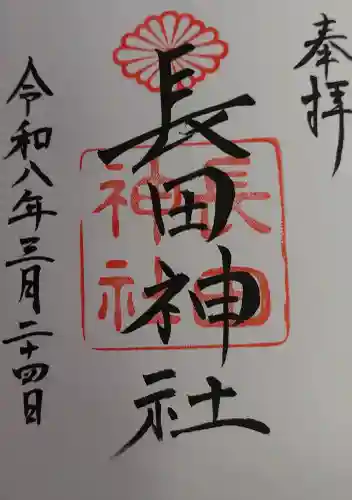 奉拝
長田神社
長田
神社
令和八年三月二十四日